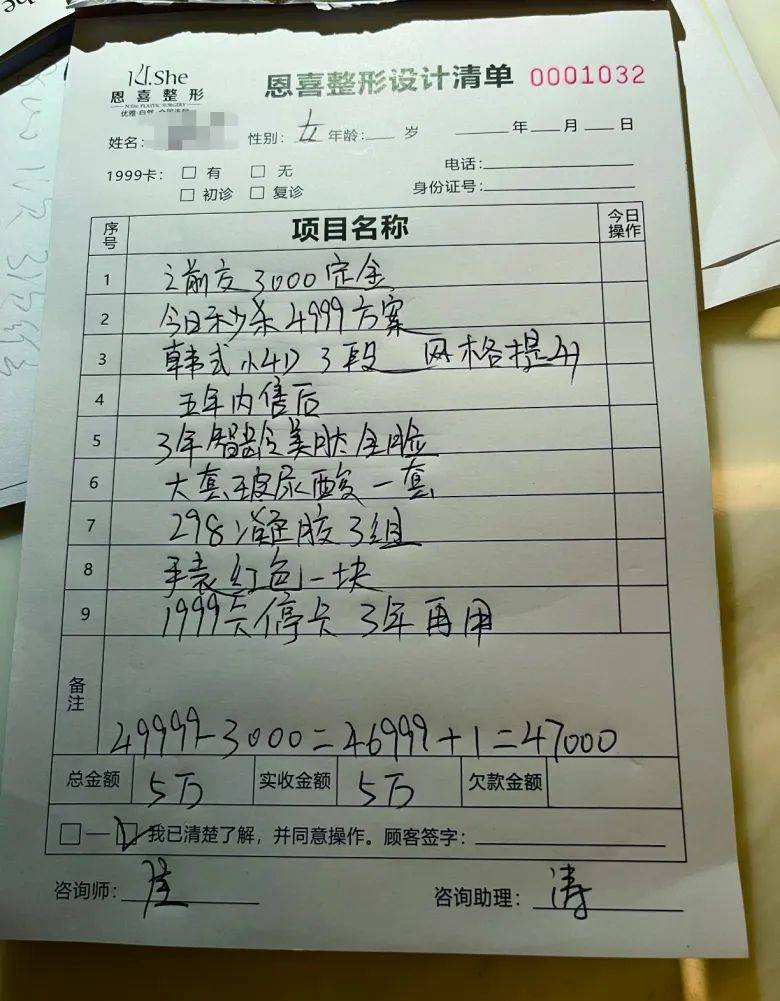 ν.She
恩喜整形
优雅·自然
恩喜整形设计清单 0001032
姓名: 性别: 女 年龄: 岁 年 月 日
1999卡: □ 有 □ 无 电话:
□ 初诊 □ 复诊 身份证号:
序号 项目名称 今日操作
1 之前交3000定金
2 今日秒杀4999方案
3 韩式小4D 3段 网格提升
4 五年内售后
5 3年智龄美肤全脸
6 大真玻尿酸一套
7 298凝胶3组
8 手表红包一块
9 1999卡停卡 3年再用
备注
49999-3000=46999+1=47000
总金额 5万 实收金额 5万 欠款金额
□—☑我已清楚了解，并同意操作。顾客签字:
咨询师: 咨询助理: 涛